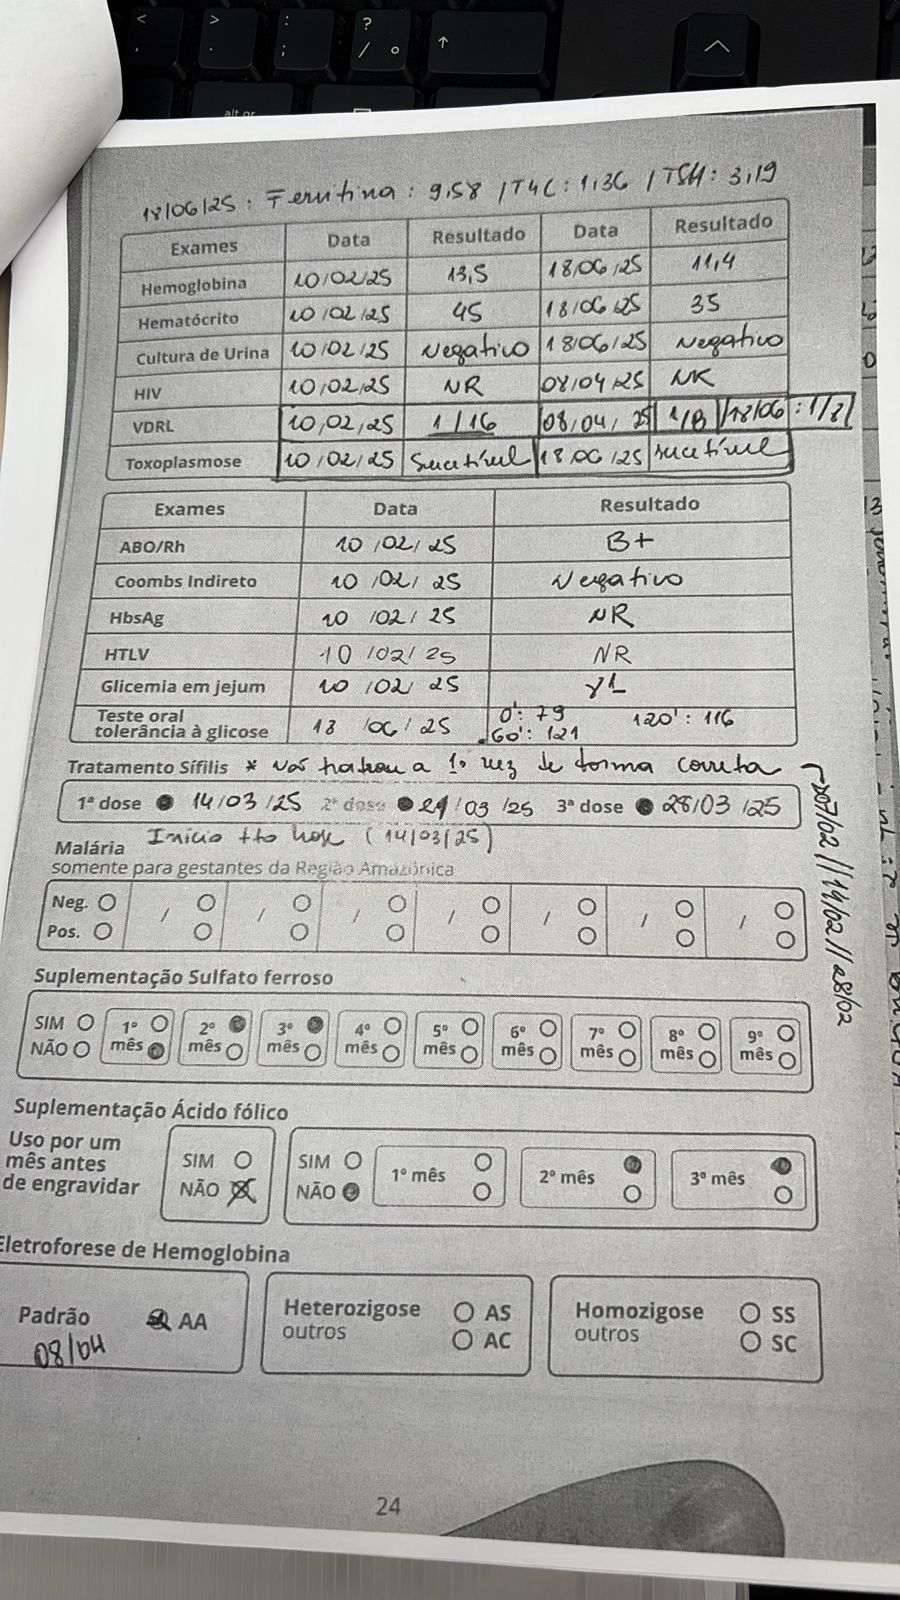 <
,
>
.
:
;
?
/ °
↑
alt gr
18/06/25 : Ferritina : 9,58 / T4L : 1,36 / TSH : 3,19
Exames Data Resultado Data Resultado
Hemoglobina 10/02/25 13,5 18/06/25 11,4
Hematócrito 10/02/25 45 18/06/25 35
Cultura de Urina 10/02/25 Negativo 18/06/25 Negativo
HIV 10/02/25 NR 08/04/25 NR
VDRL 10/02/25 1/16 08/04/25 1/8 18/06 : 1/2
Toxoplasmose 10/02/25 18/06/25
Exames Data Resultado
ABO/Rh 10/02/25 B+
Coombs Indireto 10/02/25 Negativo
HbsAg 10/02/25 NR
HTLV 10/02/25 NR
Glicemia em jejum 10/02/25
Teste oral tolerância à glicose 18/06/25 0': 79 120': 116
60': 121
Tratamento Sífilis * Não tratou a 1ª vez de forma correta
1ª dose 14/03/25 2ª dose 21/03/25 3ª dose 28/03/25
07/02 // 14/02 // 28/02
Malária Início tto hoje (14/03/25)
somente para gestantes da Região Amazônica
Neg. / / / / / / /
Pos.
Suplementação Sulfato ferroso
SIM 1º 2º 3º 4º 5º 6º 7º 8º 9º
NÃO mês mês mês mês mês mês mês mês mês
Suplementação Ácido fólico
Uso por um
mês antes
de engravidar
SIM
NÃO
SIM
NÃO
1º mês 2º mês 3º mês
Eletroforese de Hemoglobina
Padrão AA
08/04
Heterozigose AS
outros AC
Homozigose SS
outros SC
24